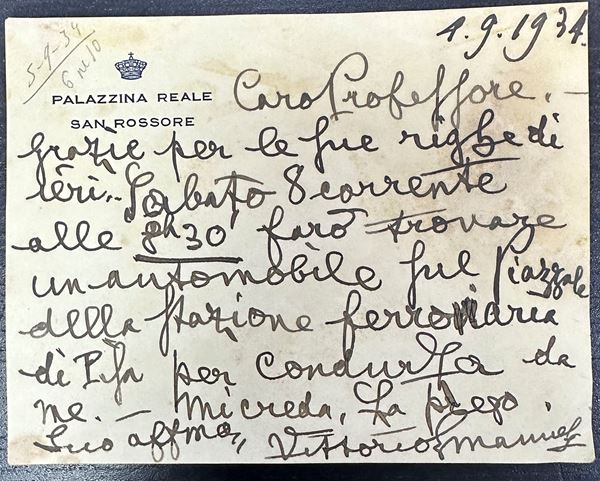 4.9.1934.
5-9-34
PALAZZINA REALE
SAN ROSSORE
Caro Professore. —
grazie per le sue righe di
ieri. Sabato 8 corrente
alle 8h 30, farò trovare
un automobile sul Piazzale
della stazione ferroviaria
di Pisa per condurLa da
me. — Mi creda, La prego.
Suo affmo, Vittorio Emanuele